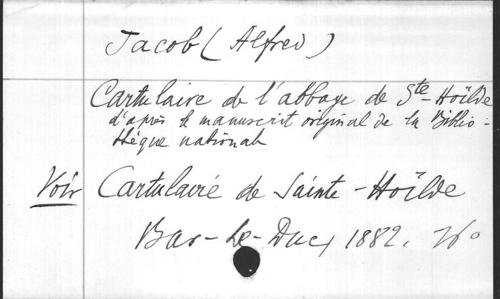 Jacob (Alfred)
Cartulaire de l'abbaye de Ste-Hoïlde
d'après le manuscrit original de la Biblio-
thèque nationale
Voir Cartulaire de Sainte-Hoïlde
Bar-le-Duc, 1882.